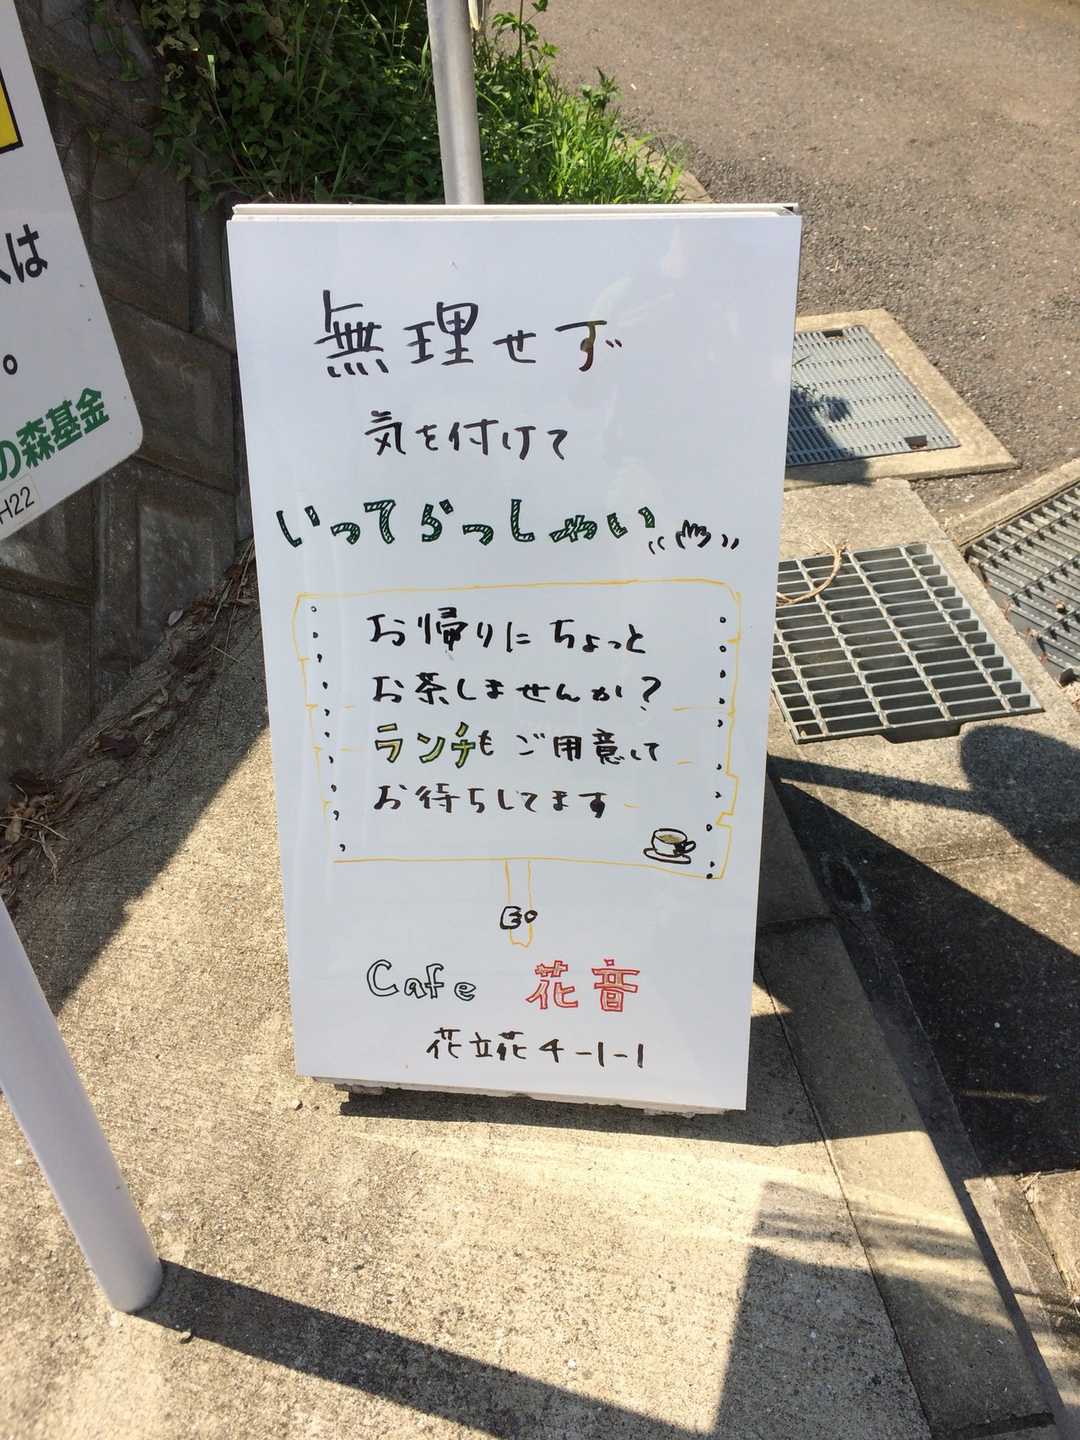 は
。
の森基金
H22
無理せず
気を付けて
いってらっしゃい
お帰りにちょっと
お茶しませんか?
ランチもご用意して
お待ちしてます
Cafe 花音
花立花4-1-1